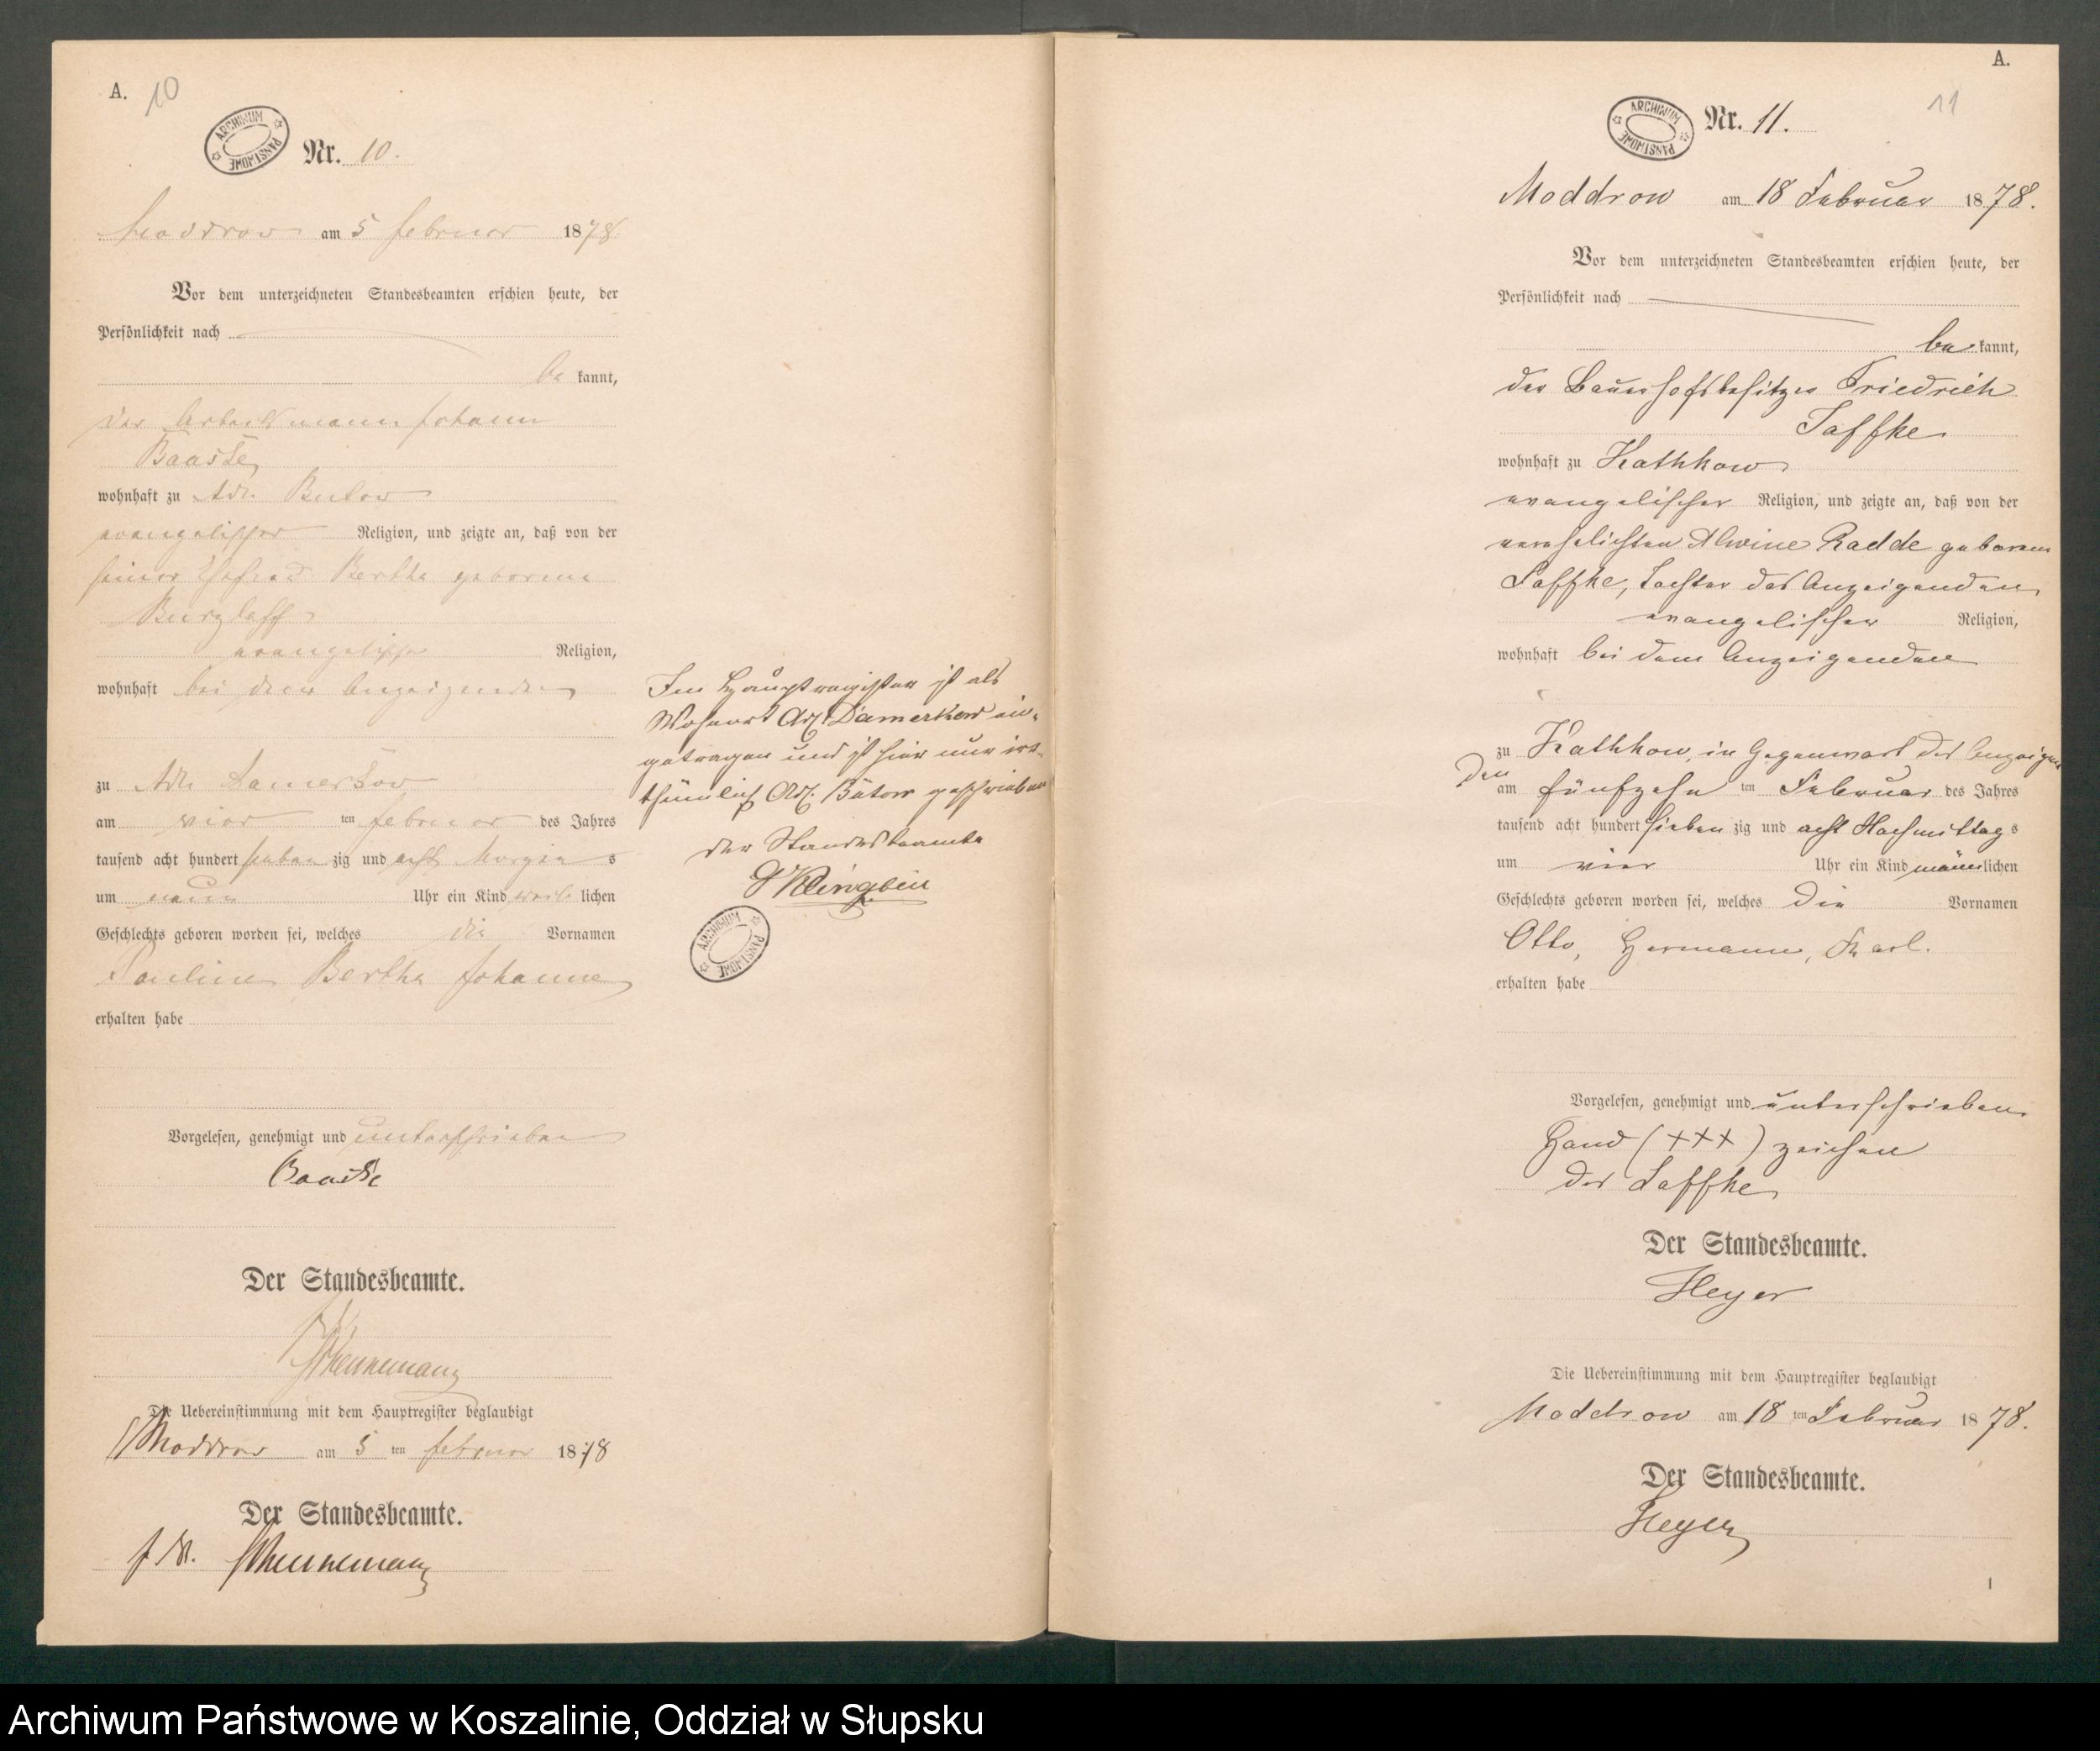 A. 10
ARCHIWUM PAŃSTWOWE
Nr. 10.
Moddrow am 5 Februar 1878.
Vor dem unterzeichneten Standesbeamten erschien heute, der
Persönlichkeit nach
be kannt,
der Arbeitsmann Johann
Baaske
wohnhaft zu Adl. Butow
evangelischer Religion, und zeigte an, daß von der
seiner Ehefrau Bertha geborene
Burzlaff
evangelischer Religion,
wohnhaft bei dem Anzeigenden
zu Adl. Damerkow
am vier ten Februar des Jahres
tausend acht hundert sieben zig und acht Morgen s
um neun Uhr ein Kind weib lichen
Geschlechts geboren worden sei, welches die Vornamen
Pauline Bertha Johanne
erhalten habe
Vorgelesen, genehmigt und unterschrieben
Baaske
Der Standesbeamte.
Die Uebereinstimmung mit dem Hauptregister beglaubigt
Moddrow am 5 ten Februar 1878
Der Standesbeamte.
Im Hauptregister ist als
Wohnort Adl. Damerkow ein-
getragen und ist hier nur irr-
thümlich Adl. Bütow geschrieben
der Standesbeamte
ARCHIWUM PAŃSTWOWE
A.
11
ARCHIWUM PAŃSTWOWE
Nr. 11.
Moddrow am 18 Februar 1878.
Vor dem unterzeichneten Standesbeamten erschien heute, der
Persönlichkeit nach
be kannt,
der Bauerhofsbesitzer Friedrich
Saffke
wohnhaft zu Kathkow
evangelischer Religion, und zeigte an, daß von der
verehelichten Alwine Radde geborenen
Saffke, Tochter des Anzeigenden
evangelischer Religion,
wohnhaft bei dem Anzeigenden
zu Kathkow, in Gegenwart des Anzeigen
den
am fünfzehn ten Februar des Jahres
tausend acht hundert sieben zig und acht Nachmittag s
um vier Uhr ein Kind männlichen
Geschlechts geboren worden sei, welches die Vornamen
Otto, Hermann, Karl.
erhalten habe
Vorgelesen, genehmigt und unterschrieben
Hand (+++) zeichen
des Saffke
Der Standesbeamte.
Heyer
Die Uebereinstimmung mit dem Hauptregister beglaubigt
Moddrow am 18 ten Februar 1878.
Der Standesbeamte.
Heyer
1
Archiwum Państwowe w Koszalinie, Oddział w Słupsku